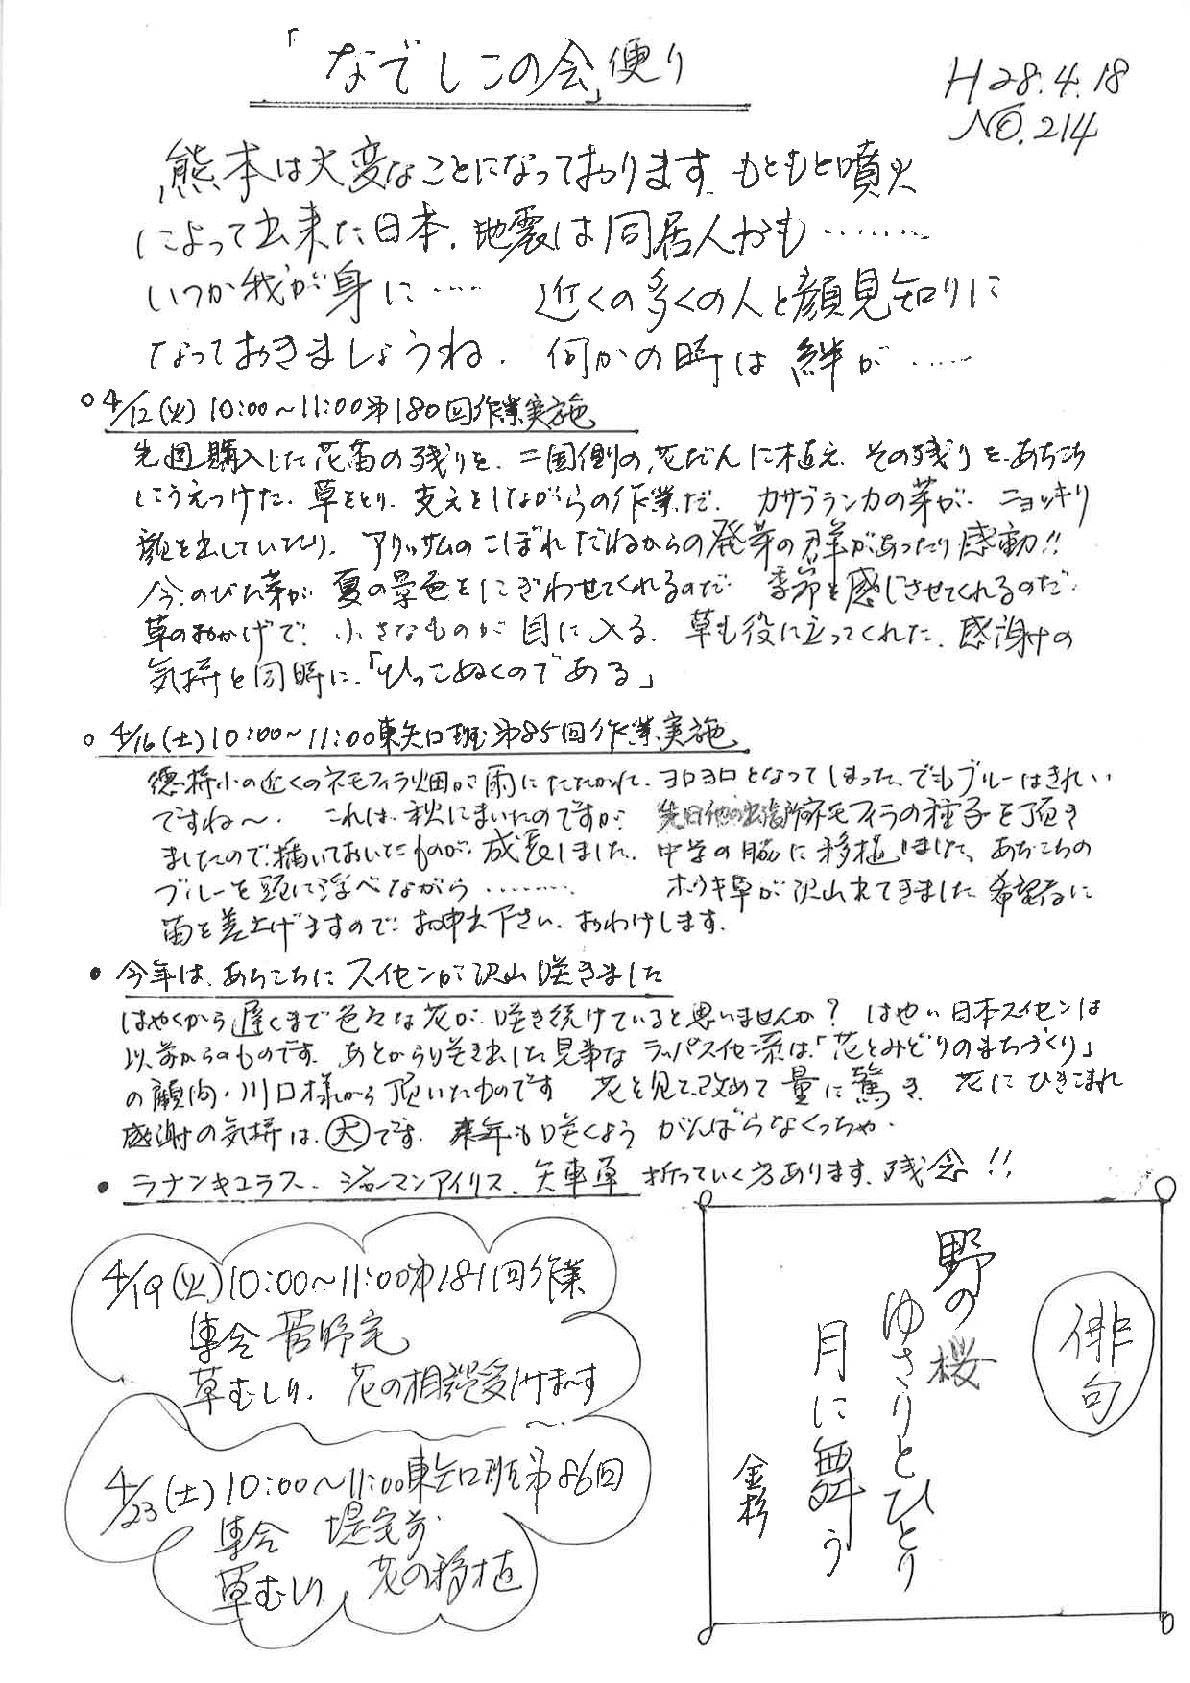 「なでしこの会」便り
H28.4.18
NO.214
熊本は大変なことになっております。もともと噴火
によって出来た日本、地震は同居人かも………
いつか我が身に…… 近くの多くの人と顔見知りに
なっておきましょうね。何かの時は絆が……
○4/12(火)10:00～11:00第180回作業実施
先週購入した花苗の残りを、二国側の花だんに植え、その残りを、あちこち
にうえつけた。草をとり、支えをしながらの作業だ。カサブランカの芽が、ニョッキリ
顔を出していたり、アリッサムのこぼれだねからの発芽の群があったり感動!!
今、のびた芽が夏の景色をにぎわせてくれるのだ 季節を感じさせてくれるのだ。
草のおかげで、小さなものが目に入る。草も役に立ってくれた、感謝の
気持と同時に、「ひっこぬくのである」
○4/16(土)10:00～11:00東矢口班第85回作業実施
徳持小の近くのネモフィラ畑が雨にたたかれ、ヨロヨロとなってしまった、でもブルーはきれい
ですね～。これは、秋にまいたのですが 先日他の出張所ネモフィラの種子を頂き
ましたので、播いておいたものが、成長しました。中学の脇に移植しました、あちこちの
ブルーを頭に浮べながら……… ホウキ草が沢山出てきました 希望者に
苗を差上げますので、お申出下さい、おわけします。
●今年は、あちこちにスイセンが沢山咲きました
はやくから遅くまで色々な花が、咲き続けていると思いませんか? はやい日本スイセンは
以前からのものです。あとからり咲き出した見事なラッパスイセン系は、「花とみどりのまちづくり」
の顧問・川口様から頂いたものです 花を見て、改めて量に驚き、花にひきこまれ
感謝の気持は、大です。来年も咲くようがんばらなくっちゃ。
●ラナンキュラス、ジャーマンアイリス、矢車草折っていく方あります、残念!!
4/19(火)10:00～11:00第181回作業
集合 菅野宅
草むしり、花の相談受けます
4/23(土)10:00～11:00東矢口班第86回
集合 堤宅前
草むしり 花の移植
俳句
野の桜
ゆさりとひとり
月に舞う
金杉